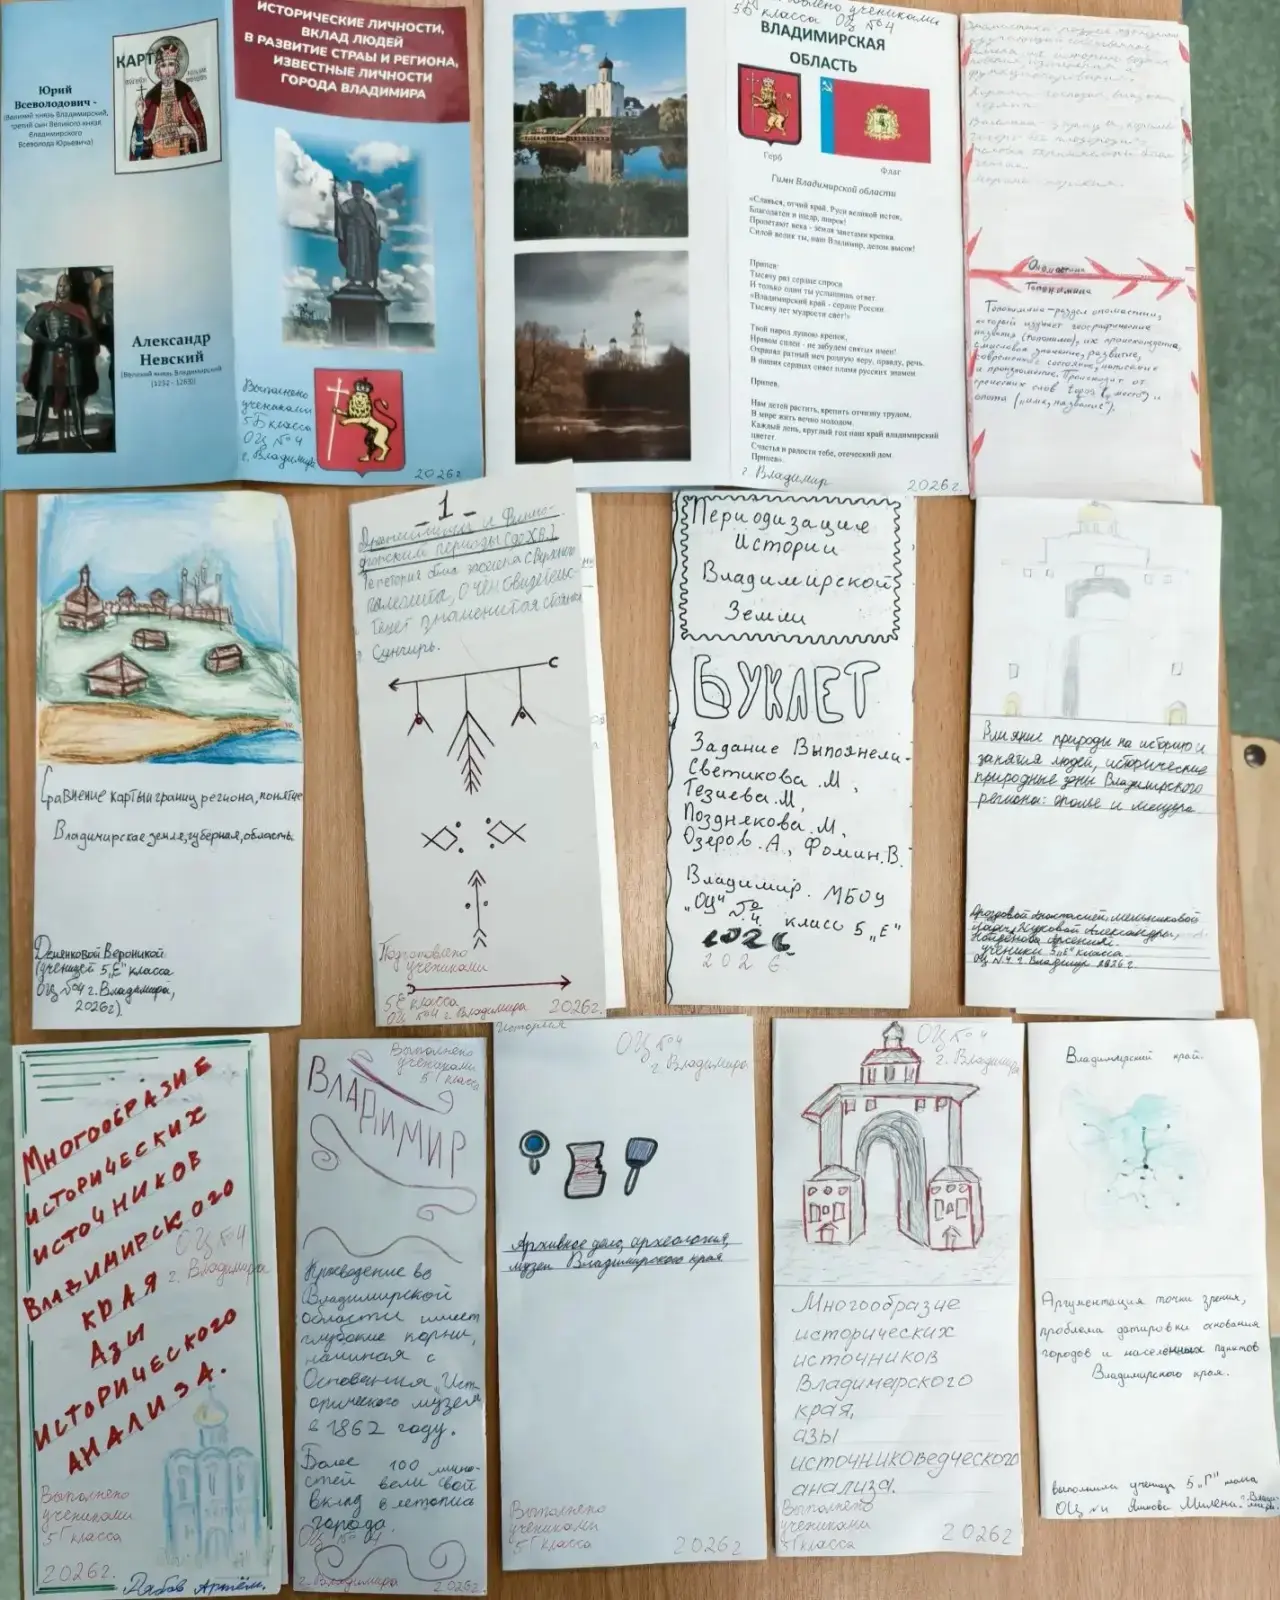 Юрий
Всеволодович -
(Великий князь Владимирский,
третий сын Великого князя
Владимирского
Всеволода Юрьевича)
КАРТ
Александр
Невский
(Великий князь Владимирский
(1252 - 1263))
ИСТОРИЧЕСКИЕ ЛИЧНОСТИ,
ВКЛАД ЛЮДЕЙ
В РАЗВИТИЕ СТРАЫ И РЕГИОНА,
ИЗВЕСТНЫЕ ЛИЧНОСТИ
ГОРОДА ВЛАДИМИРА
Выполнено
учениками
5Б класса
ОЦ №4
г. Владимир
2026г.
учениками
5Б класса ОЦ №4
ВЛАДИМИРСКАЯ
ОБЛАСТЬ
Герб
Флаг
Гимн Владимирской области
«Славься, отчий край, Руси великой исток,
Благодатен и щедр, широк!
Пролетают века - земля заветами крепка
Силой велик ты, наш Владимир, делом высок!
Припев:
Тысячу раз сердце спроси
И только один ты услышишь ответ
«Владимирский край - сердце России
Тысячу лет мудрости свет!»
Твой народ душою крепок,
Нравом силен - не забудем святых имен!
Охранял ратный меч родную веру, правду, речь.
В наших сердцах сияет пламя русских знамен
Припев.
Нам детей растить, крепить отчизну трудом,
В мире жить вечно молодом.
Каждый день, круглый год наш край владимирский
цветет
Счастья и радости тебе, отеческий дом.
Припев»
г. Владимир
2026г.
Ономастика
Топонимика
Топонимика - раздел ономастики,
который изучает географические
названия (топонимы), их происхождение,
смысловое значение, развитие,
современное состояние, написание
и произношение. Происходит от
греческих слов
("место") и
("имя, название").
Сравнение карты и границ региона, понятие
Владимирская земля, губерная, область.
Деменковой Вероникой
(ученицей 5 „Е" класса
ОЦ №4 г. Владимира,
2026г.)
1
Древнейший и Финно-
угорский периоды (до X в.)
Территория была заселена с Верхнего
палеолита, о чём свидетельс-
твует знаменитая стоянка
Сунгирь.
Подготовлено
учениками
5Е класса
ОЦ №4 г. Владимира
2026г.
Периодизация
Истории
Владимирской
Земли
БУКЛЕТ
Задание Выполнели-
Светикова .М,
Тезиева.М,
Позднякова .М.
Озеров .А., Фомин.В.
Владимир. МБОУ
„ОЦ" №4. класс 5 „Е"
2026
2026
Влияние природы на историю и
занятия людей, исторические
природные зоны Владимирского
региона: ополье и мещера.
Дроздовой Анастасией, Мельниковой
Жуковой Александры,
Арсений.
ученики 5 „Е" класса.
ОЦ №4 г. Владимир 2026г.
МНОГООБРАЗИЕ
ИСТОРИЧЕСКИХ
ИСТОЧНИКОВ
ВЛАДИМИРСКОГО
КРАЯ
АЗЫ
ИСТОРИЧЕСКОГО
АНАЛИЗА.
ОЦ №4
г. Владимира
Выполнено
учениками
5Г класса
2026г.
Артём.
Выполнено
учениками
5Г класса
ВЛАДИМИР
Краеведение во
Владимирской
области имеет
глубокие корни,
начиная с
Основания „Ист-
орического музея"
в 1862 году.
Более 100 лично-
стей вели свой
вклад в летопись
города.
ОЦ №4
г. Владимира
2026г.
История
ОЦ №4
г. Владимира
Архивное дело, археология,
музеи Владимирского края
Выполнено
учениками
5Г класса
2026г
ОЦ №4
г. Владимира
Многообразие
исторических
источников
Владимерского
края,
азы
источниковедческого
анализа.
Выполнено
учениками
5Г класса
2026г
Владимирский край.
Аргументация точки зрения,
проблема датировки основания
городов и населенных пунктов
Владимирского края.
выполнила ученица 5 „Г" класса
Милена.